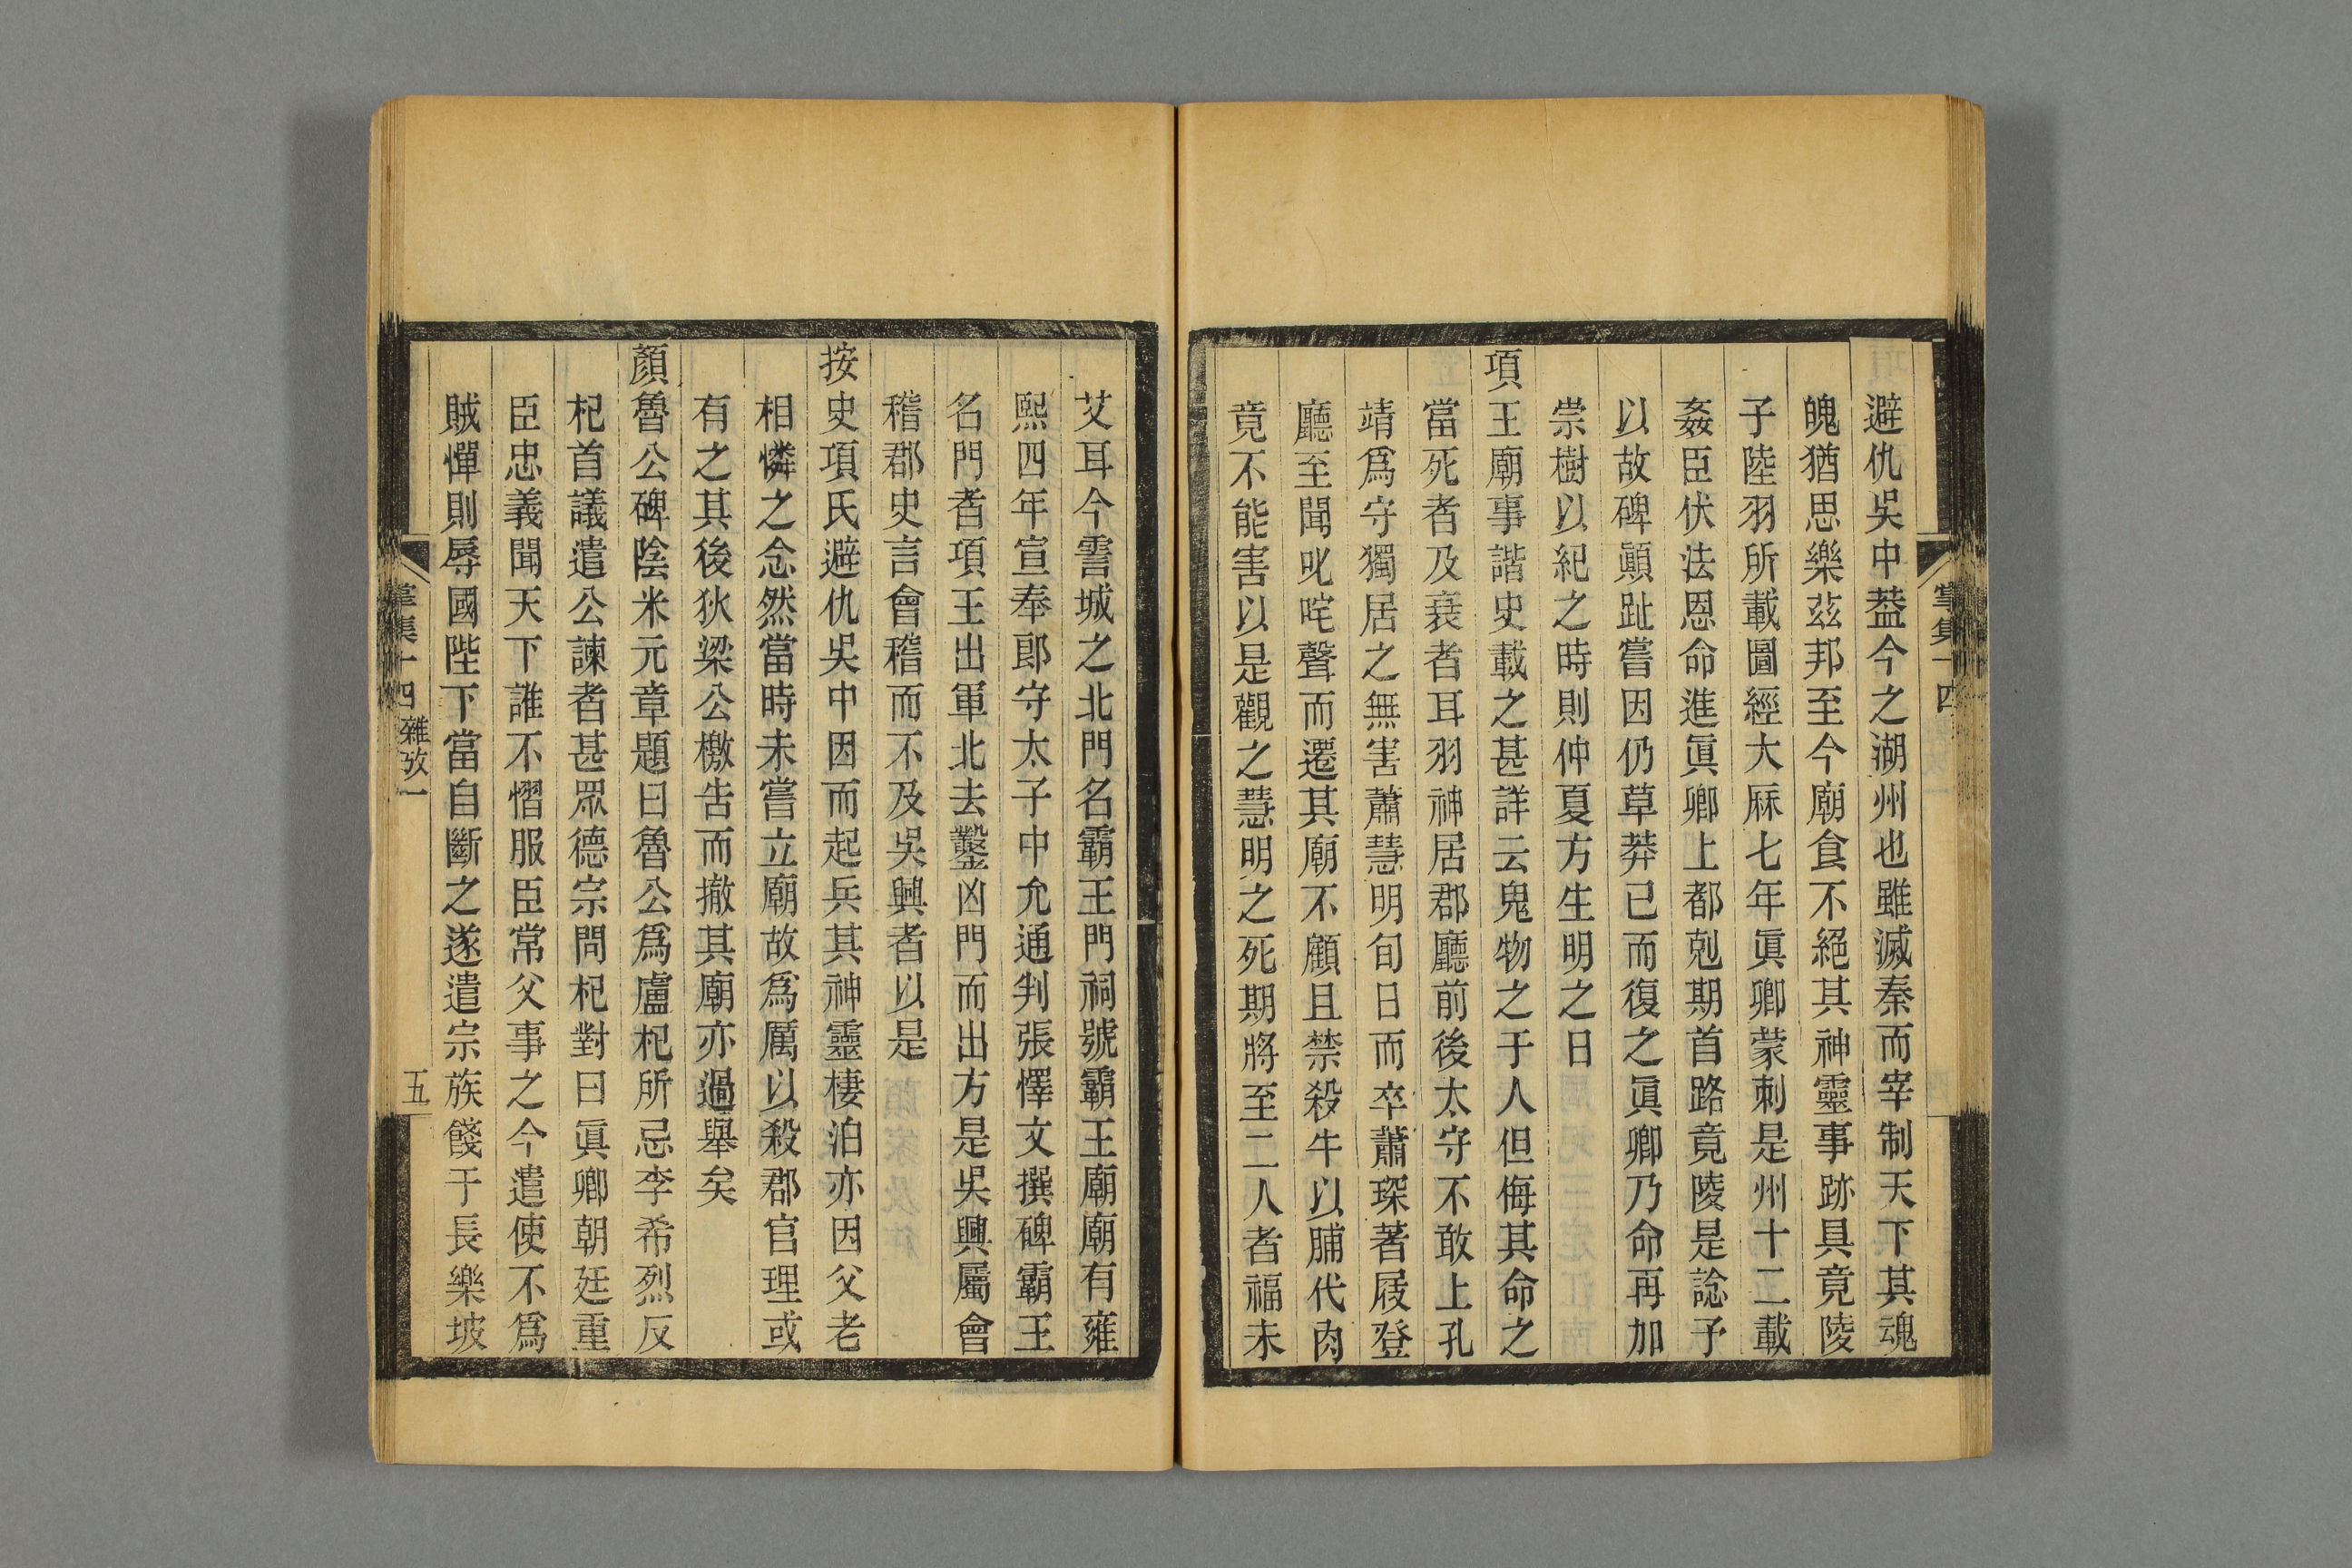 避仇吳中葢今之湖州也雖滅秦而宰制天下其魂
魄猶思樂茲邦至今廟食不絕其神靈事跡具竟陵
子陸羽所載圖經大厤七年眞卿蒙刺是州十二載
姦臣伏法恩命進眞卿上都剋期首路竟陵是諗予
以故碑顚趾嘗因仍草莽已而復之眞卿乃命再加
崇樹以紀之時則仲夏方生明之日
項王廟事諧史載之甚詳云鬼物之于人但侮其命之
當死者及衰者耳羽神居郡廳前後太守不敢上孔
靖爲守獨居之無害蕭慧明旬日而卒蕭琛著屐登
廳至聞叱咤聲而遷其廟不顧且禁殺牛以脯代肉
竟不能害以是觀之慧明之死期將至二人者福未
艾耳今霅城之北門名霸王門祠號霸王廟廟有雍
熙四年宣奉郎守太子中允通判張懌文撰碑霸王
名門者項王出軍北去鑿凶門而出方是吳興屬會
稽郡史言會稽而不及吳興者以是
按史項氏避仇吳中因而起兵其神靈棲泊亦因父老
相憐之念然當時未嘗立廟故爲厲以殺郡官理或
有之其後狄梁公檄告而撤其廟亦過舉矣
顏魯公碑陰米元章題曰魯公爲盧杞所忌李希烈反
杞首議遣公諫者甚眾德宗問杞對曰眞卿朝廷重
臣忠義聞天下誰不慴服臣常父事之今遣使不爲
賊憚則辱國陛下當自斷之遂遣宗族餞于長樂坡
集十四 雜攷一
五